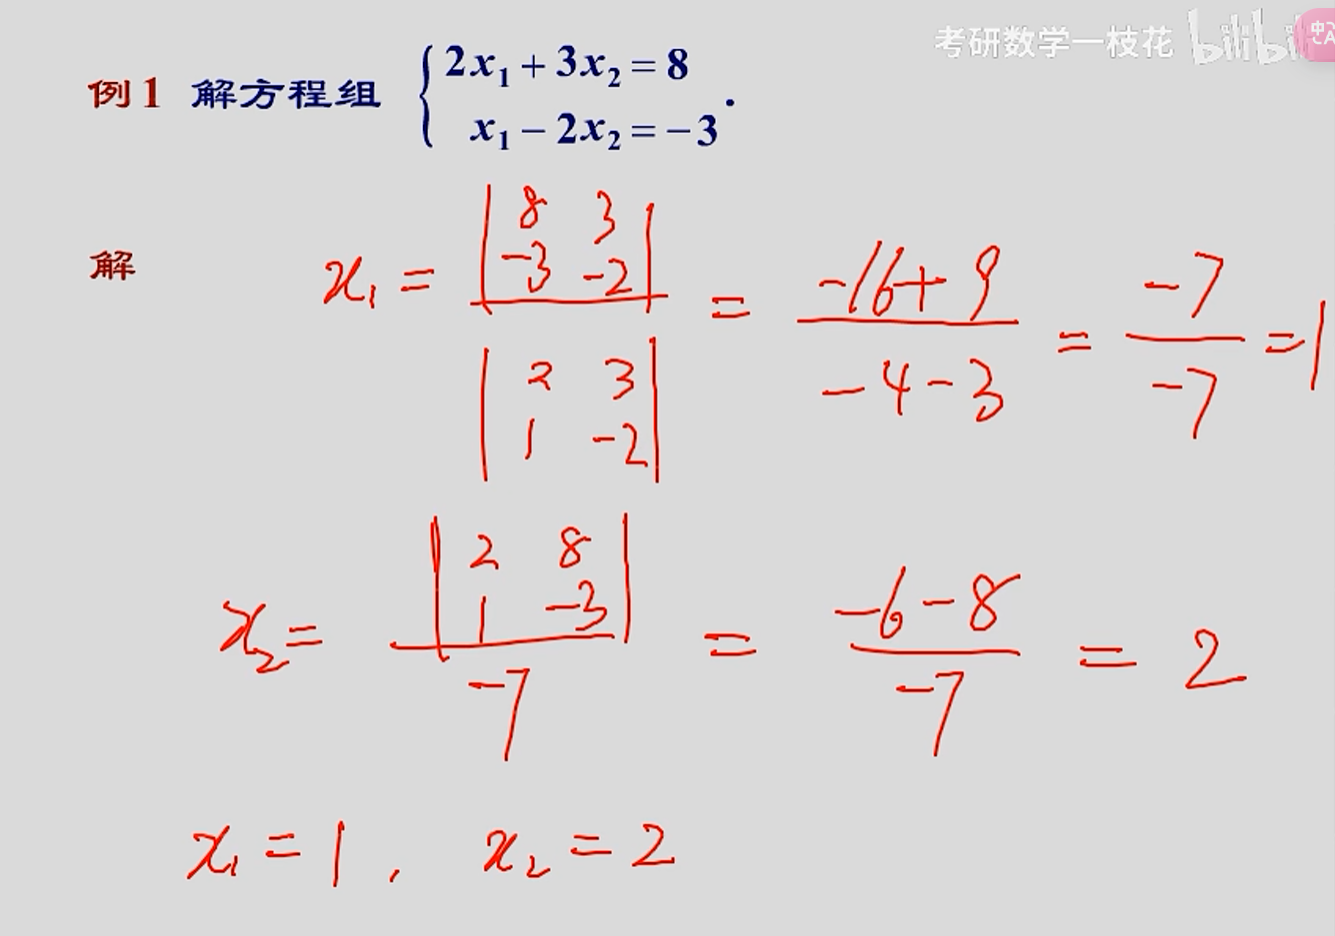 考研数学一枝花 bilibili
例1 解方程组 { 2x₁ + 3x₂ = 8
x₁ − 2x₂ = −3 .
解 x₁ = | 8 3 ; −3 −2 | / | 2 3 ; 1 −2 | = (−16+9) / (−4−3) = −7 / −7 = 1
x₂ = | 2 8 ; 1 −3 | / −7 = (−6−8) / −7 = 2
x₁ = 1 , x₂ = 2